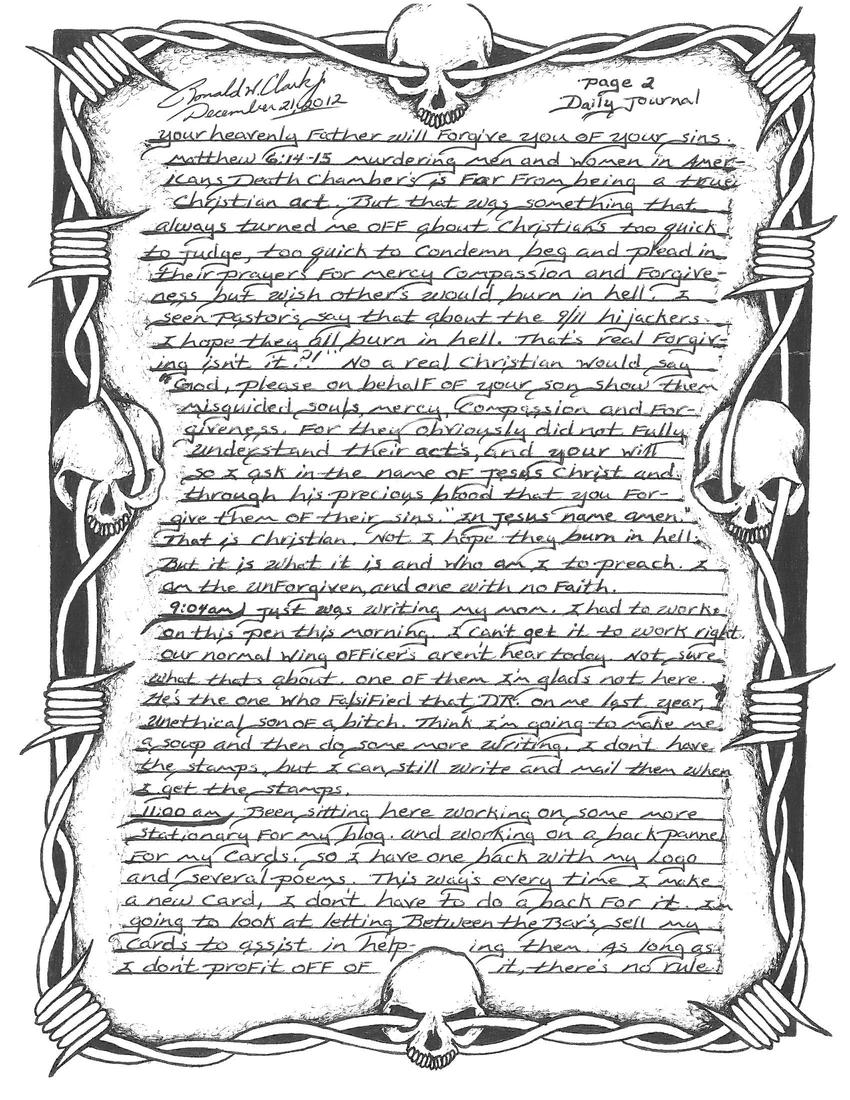 Ronald W. Clark Jr.
December 21, 2012
Page 2
Daily Journal
your heavenly Father will Forgive you of your sins.
Matthew 6:14-15 murdering men and women in Amer-
icans Death Chamber's is Far From being a true
Christian act. But that was something that
always turned me OFF about Christian's too quick
to judge, too quick to Condemn beg and plead in
their prayers For mercy Compassion and Forgive-
ness but wish other's would burn in hell. I
seen Pastor's say that about the 9/11 hijackers.
I hope they all burn in hell. That's real Forgiv-
ing isn't it?!" No a real Christian would say
"God, please on behalf of your son show them
misguided souls, mercy, Compassion and For-
giveness. For they obviously did not Fully
understand their act's, and your will
so I ask in the name of Jesus Christ and
through his precious blood that you For-
give them of their sins. "In Jesus name amen."
That is Christian. Not I hope they burn in hell.
But it is what it is and who am I to preach. I
am the UnForgiven, and one with no Faith.
9:04am Just was writing my mom. I had to worke
on this pen this morning. I can't get it to work right.
Our normal Wing officer's aren't hear today. Not sure
what that's about. one of them I'm glad's not here.
He's the one who Falsified that D.R. on me last year,
Unethical son of a bitch. Think I'm going to make me
a soup and then do some more writing. I don't have
the stamps, but I can still write and mail them when
I get the stamps.
11:00 am Been sitting here working on some more
Stationary For my blog. and working on a back pannel
For my Cards. so I have one back with my Logo
and several poems. This way's every time I make
a new Card, I don't have to do a back For it. I'm
going to look at letting Between the Bar's sell my
Card's to assist in help- ing them. As long as
I don't profit OFF OF it, there's no rule